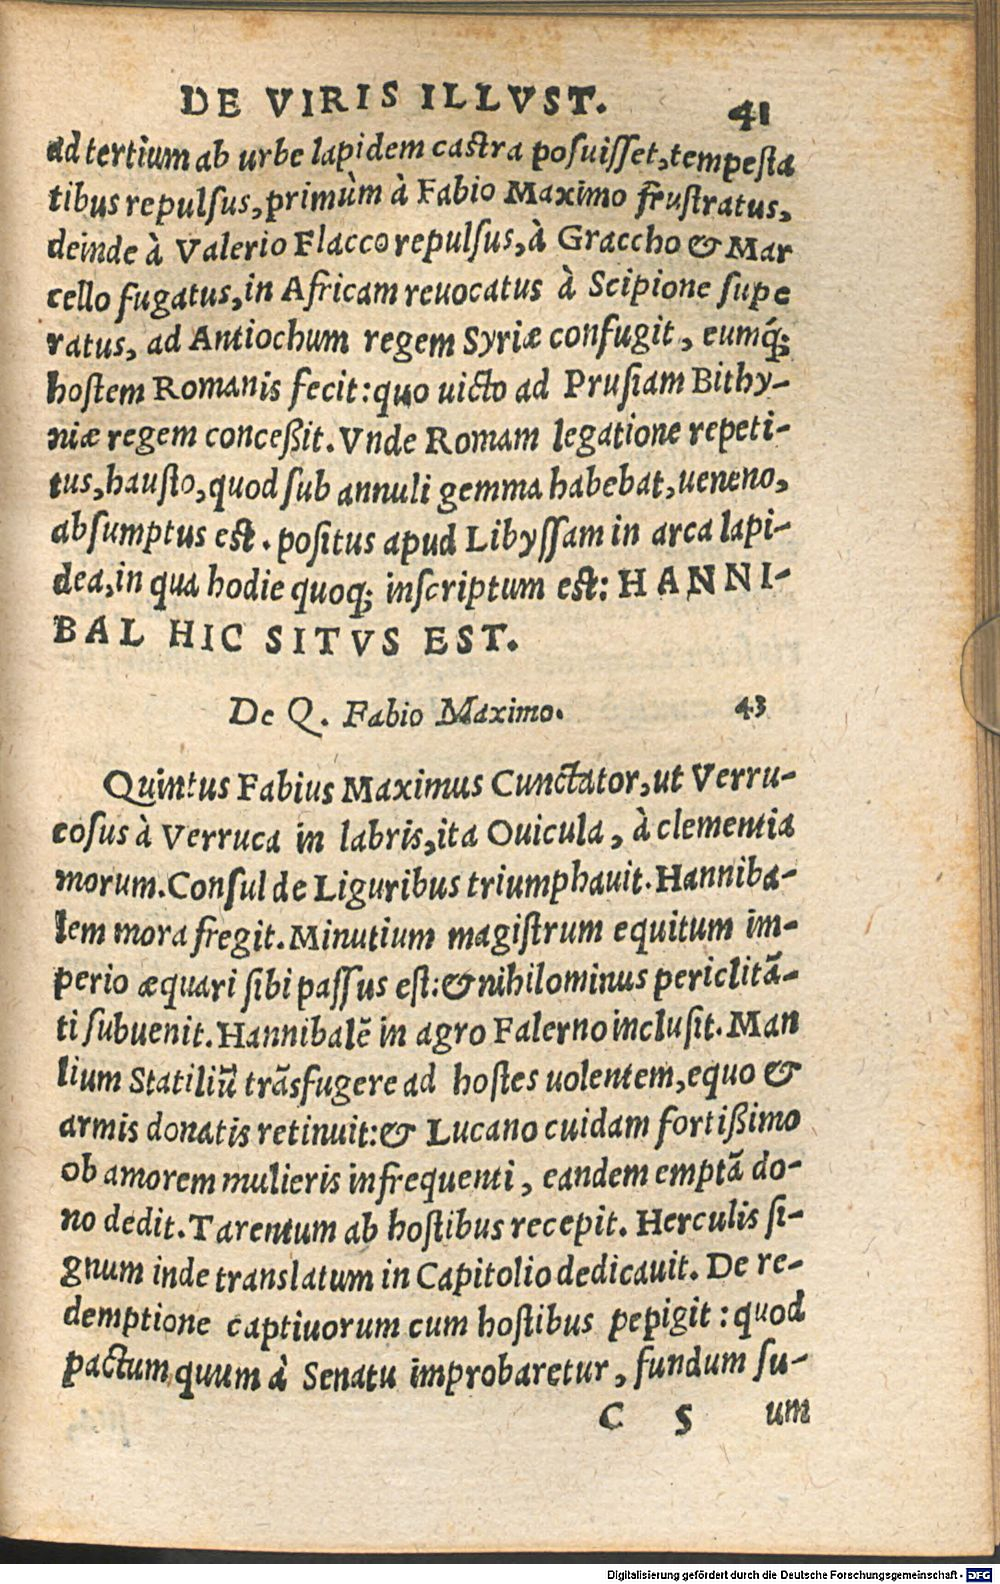 DE VIRIS ILLVST. 41
ad tertium ab urbe lapidem castra posuiſſet, tempeſta
tibus repulſus, primùm à Fabio Maximo fruſtratus,
deinde à Valerio Flacco repulſus, à Graccho & Mar
cello fugatus, in Africam reuocatus à Scipione ſupe
ratus, ad Antiochum regem Syriæ confugit, eumq́;
hoſtem Romanis fecit: quo uicto ad Pruſiam Bithy-
niæ regem conceßit. Vnde Romam legatione repeti-
tus, hauſto, quod ſub annuli gemma habebat, ueneno,
abſumptus est. poſitus apud Libyſſam in arca lapi-
dea, in qua hodie quoq; inſcriptum est: HANNI-
BAL HIC SITVS EST.
De Q. Fabio Maximo. 43
Quintus Fabius Maximus Cunctator, ut Verru-
coſus à Verruca in labris, ita Ouicula, à clementia
morum. Conſul de Liguribus triumphauit. Hanniba-
lem mora fregit. Minutium magiſtrum equitum im-
perio æquari ſibi paſſus eſt: & nihilominus periclitã-
ti ſubuenit. Hannibalẽ in agro Falerno incluſit. Man
lium Statiliũ trãsfugere ad hoſtes uolentem, equo &
armis donatis retinuit: & Lucano cuidam fortißimo
ob amorem mulieris infrequenti, eandem emptã do-
no dedit. Tarentum ab hoſtibus recepit. Herculis ſi-
gnum inde translatum in Capitolio dedicauit. De re-
demptione captiuorum cum hoſtibus pepigit: quod
pactum quum à Senatu improbaretur, fundum ſu-
C 5 um
Digitalisierung gefördert durch die Deutsche Forschungsgemeinschaft - DFG